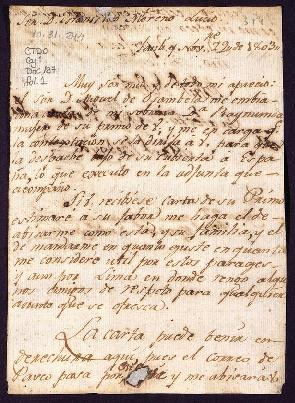 Señ. D. Francisco Moreno
10.31.244
314
CTDO
Cj 1
Doc 187
Fol. 1
y Nov.re 22 de 1802
Muy Señ. mio y de todo mi aprecio:
Señ D. Miguel de Osambela me embia
una de su sobrina D.a Raymunda
muger de su primo de V. y me en carga q.e
la contextacion se la dirija a V. para que
la despache bajo de su cubierta a Espa-
ña, lo que executo en la adjunta que
acompaño.
Si V. recibiese cartas de su Primo
estimaré a su fabor me haga el de
abisarme como esta, y su familia, y el
de mandarme en quanto guste en quanto
me considere util por estos parages
y aun por Lima en donde tengo algu-
nos amigos de respeto para qualquiera
asunto que se ofresca.
La carta puede benir en
derechura aqui pues el correo de
Pasco pasa por y me abisará V.